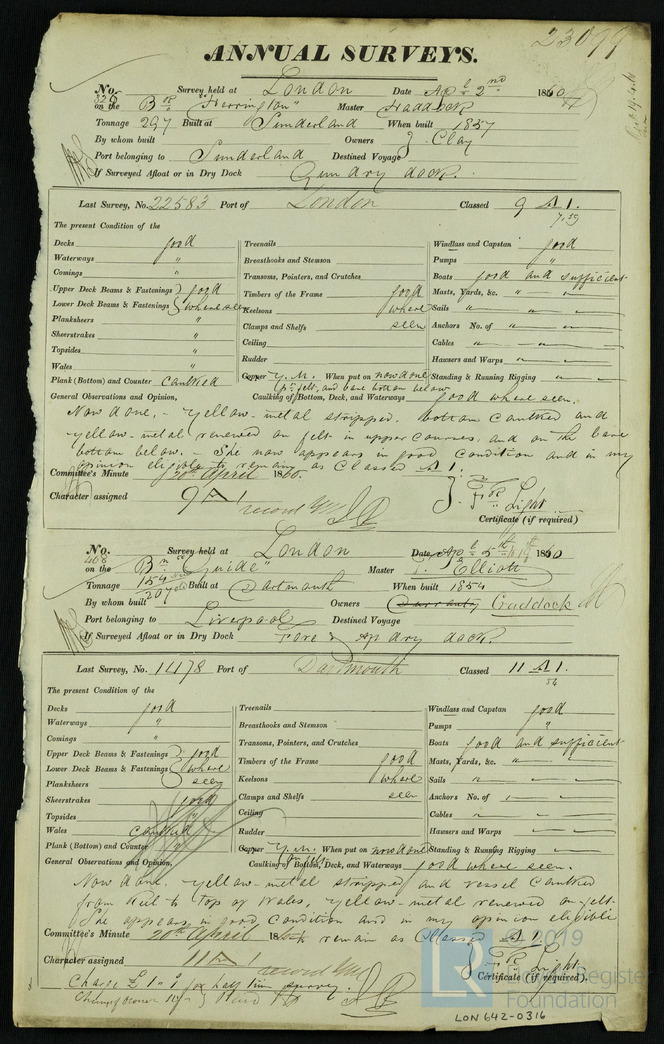 23099
ANNUAL SURVEYS.
No. 325 Survey held at London Date Apl 2nd 1860
on the Bqe "Herrington" Master Haddock
Tonnage 297 Built at Sunderland When built 1857
By whom built Owners J. Clay
Port belonging to Sunderland Destined Voyage
If Surveyed Afloat or in Dry Dock dry dock.
Last Survey, No. 22583 Port of London Classed 9 A 1.
7,59
The present Condition of the
Decks good Treenails Windlass and Capstan good
Waterways " Breasthooks and Stemson Pumps "
Comings " Transoms, Pointers, and Crutches Boats good and sufficient
Upper Deck Beams & Fastenings good Timbers of the Frame good Masts, Yards, &c. "
Lower Deck Beams & Fastenings where seen Keelsons where Sails "
Planksheers " Clamps and Shelfs seen Anchors No. of "
Sheerstrakes " Ceiling Cables "
Topsides " Rudder Hawsers and Warps "
Wales " Copper Y.M. When put on now done Standing & Running Rigging "
Plank (Bottom) and Counter Caulked pt felt, and bare bottom below
General Observations and Opinion, Caulking of Bottom, Deck, and Waterways good where seen.
Now done, - yellow-metal stripped. bottom caulked and
yellow-metal renewed on felt in upper courses, and on the bare
bottom below. - She now appears in good condition and in my
opinion eligible to remain as Classed A 1.
Committee's Minute 20th April 1860.
Character assigned 9 A 1 record YM
J. Light
Certificate (if required)
No. 408 Survey held at London Date Apl 5th 1860
on the Bn "Guide" Master Elliott
Tonnage 154 207 Built at Dartmouth When built 1854
By whom built Owners Craddock
Port belonging to Liverpool Destined Voyage
If Surveyed Afloat or in Dry Dock dry dock.
Last Survey, No. 1478 Port of Dartmouth Classed 11 A 1.
54
The present Condition of the
Decks good Treenails Windlass and Capstan good
Waterways " Breasthooks and Stemson Pumps "
Comings " Transoms, Pointers, and Crutches Boats good and sufficient
Upper Deck Beams & Fastenings good Timbers of the Frame good Masts, Yards, &c. "
Lower Deck Beams & Fastenings where Keelsons where Sails "
Planksheers seen Clamps and Shelfs seen Anchors No. of
Sheerstrakes good Ceiling Cables "
Topsides " Rudder Hawsers and Warps "
Wales Caulked Copper Y.M. When put on now done Standing & Running Rigging "
Plank (Bottom) and Counter " on felt
General Observations and Opinion, Caulking of Bottom, Deck, and Waterways good where seen.
Now done, yellow-metal stripped and vessel Caulked
from Keel to top of Wales, yellow-metal renewed on felt.
She appears in good condition and in my opinion eligible
to remain as Classed A 1.
Committee's Minute 20th April 186
Character assigned 11 A 1 record YM
Light
Certificate (if required).
Charge £1"1" for half time survey.
© 2019
LR
Lloyd's Register
Foundation
LON 642-0316